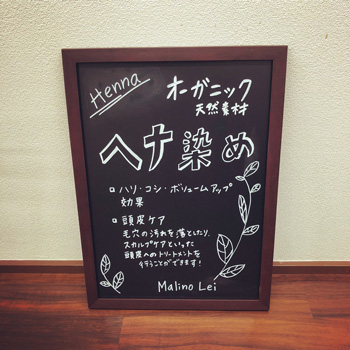 Henna
オーガニック
天然素材
ヘナ染め
ハリ・コシ・ボリュームアップ
効果
頭皮ケア
毛穴の汚れを落としたり、
スカルプケアといった
頭皮へのトリートメントを
行うことができます!
Malino Lei